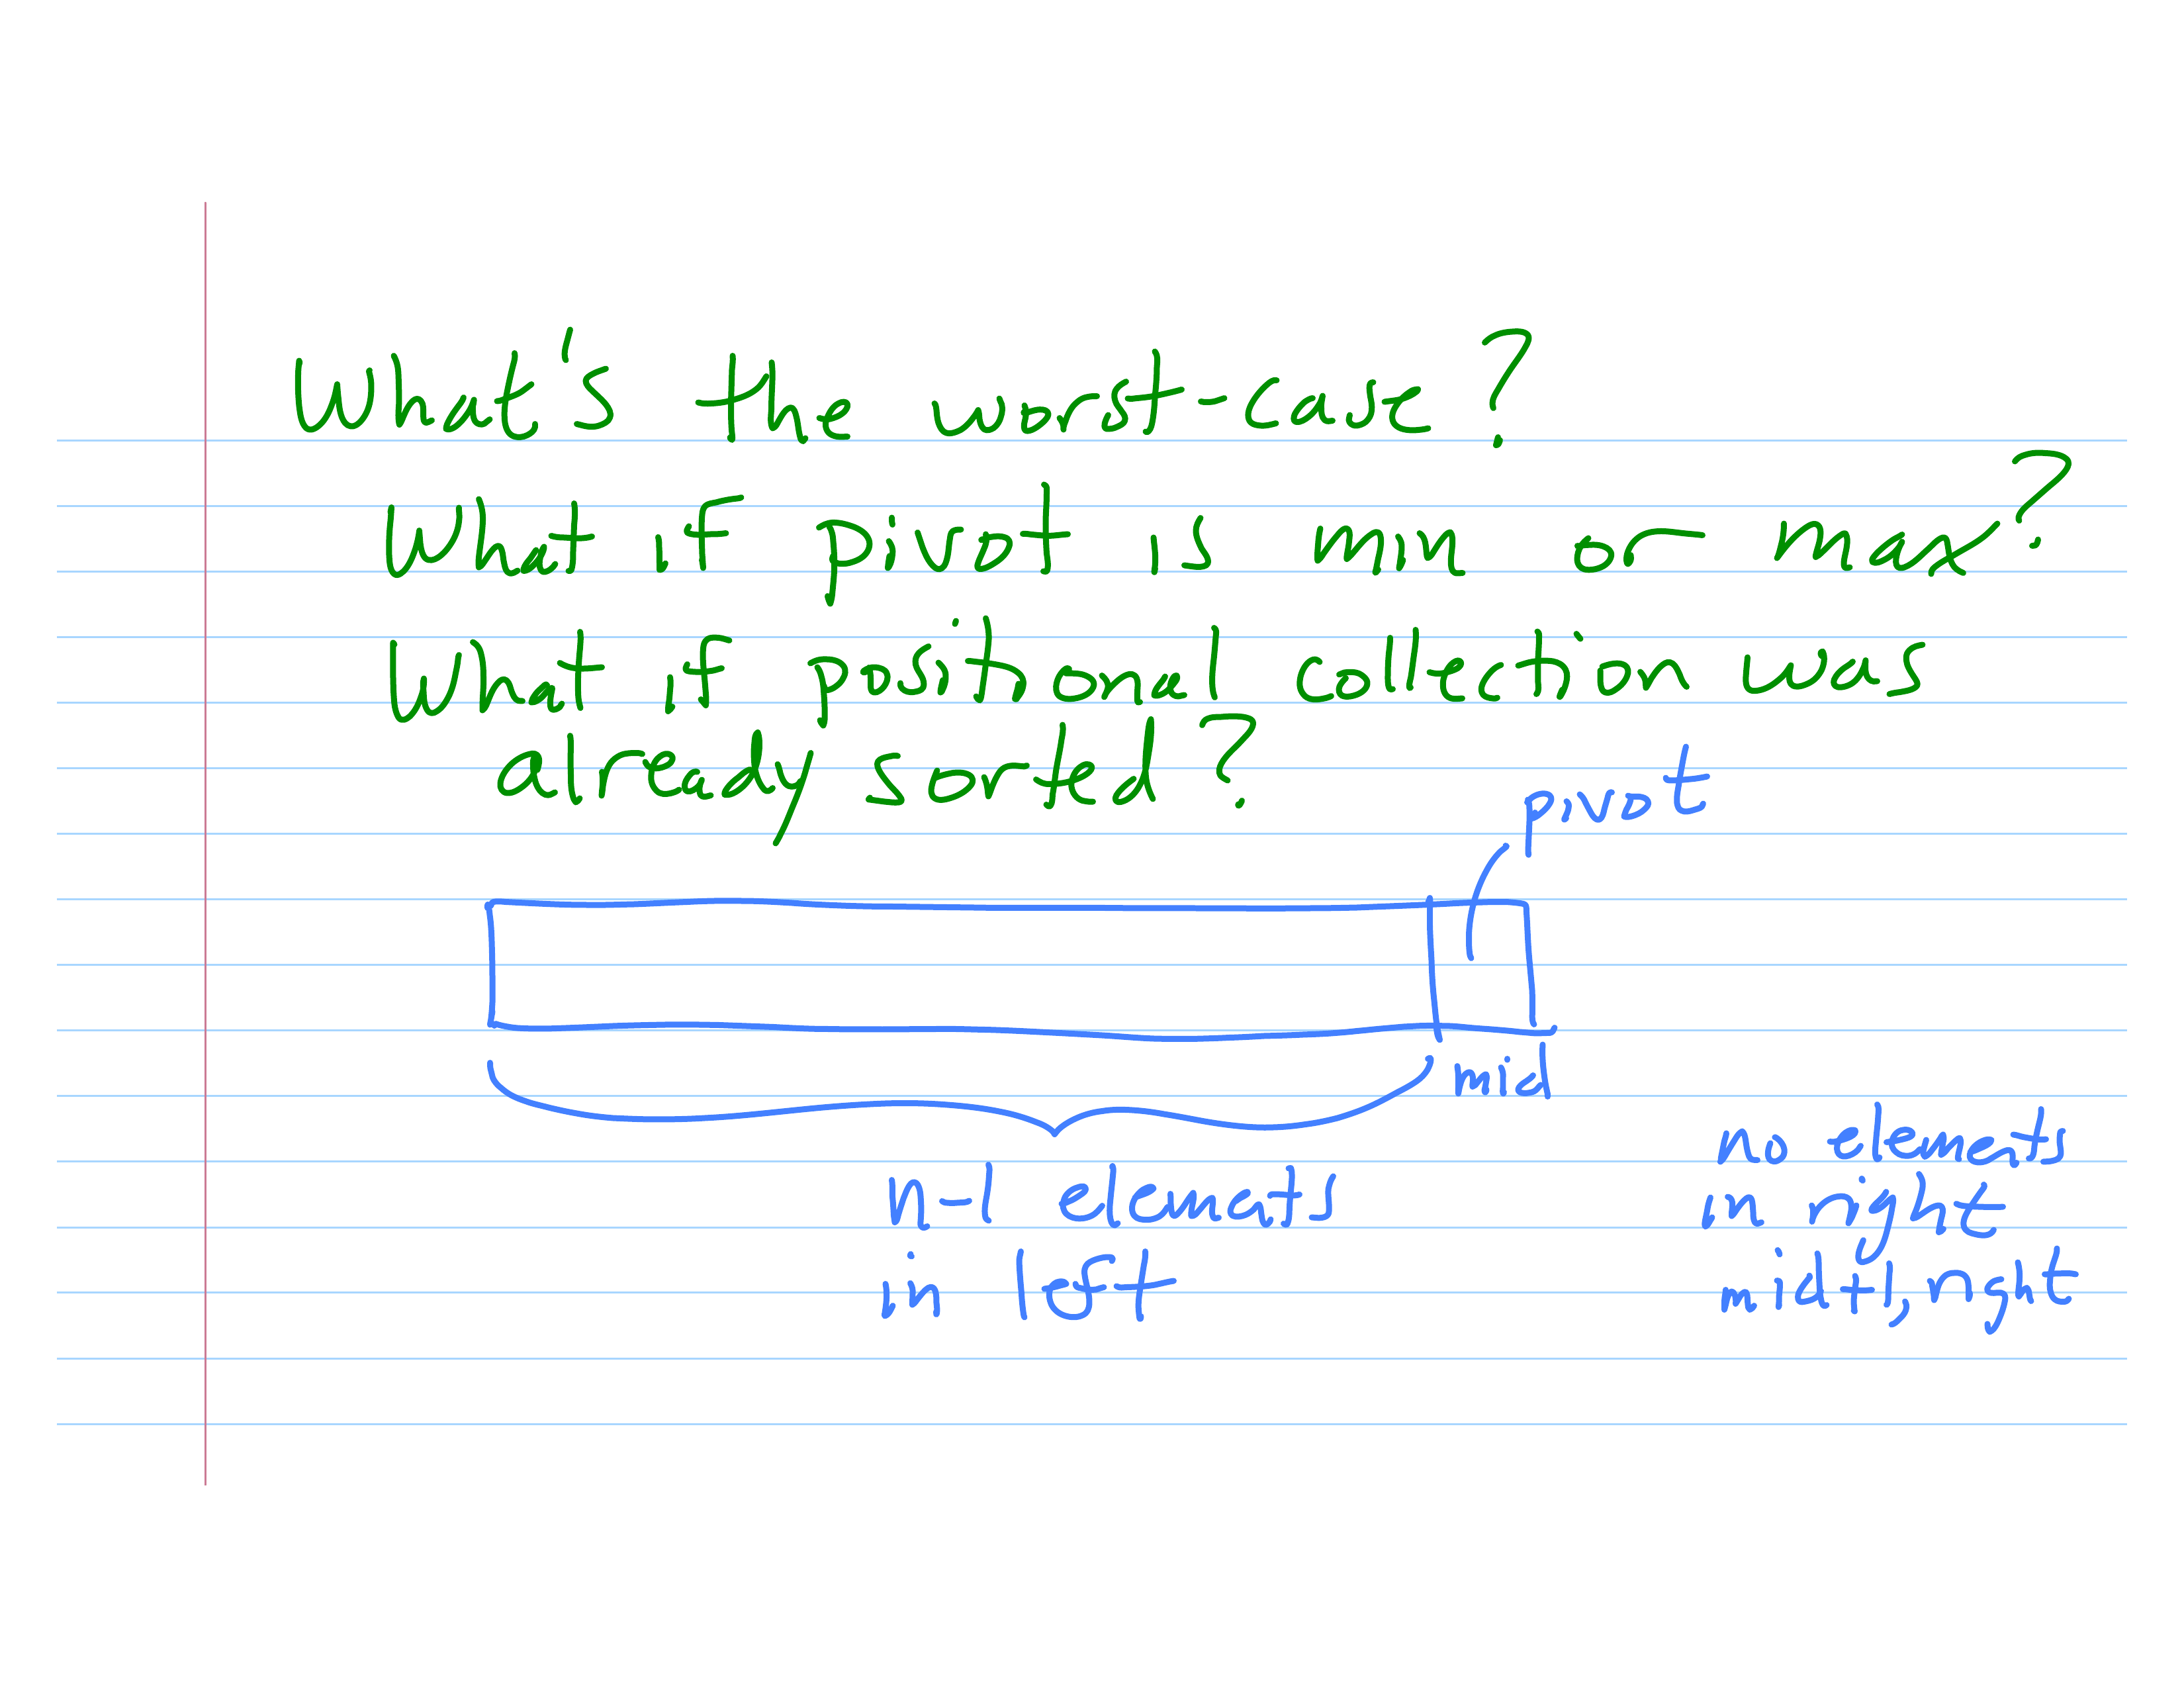 What's the worst-case?
What if pivot is min or max?
What if positional collection was
already sorted?
pivot
mid
n-1 elements
in left
no elements
in right
mid+1, right